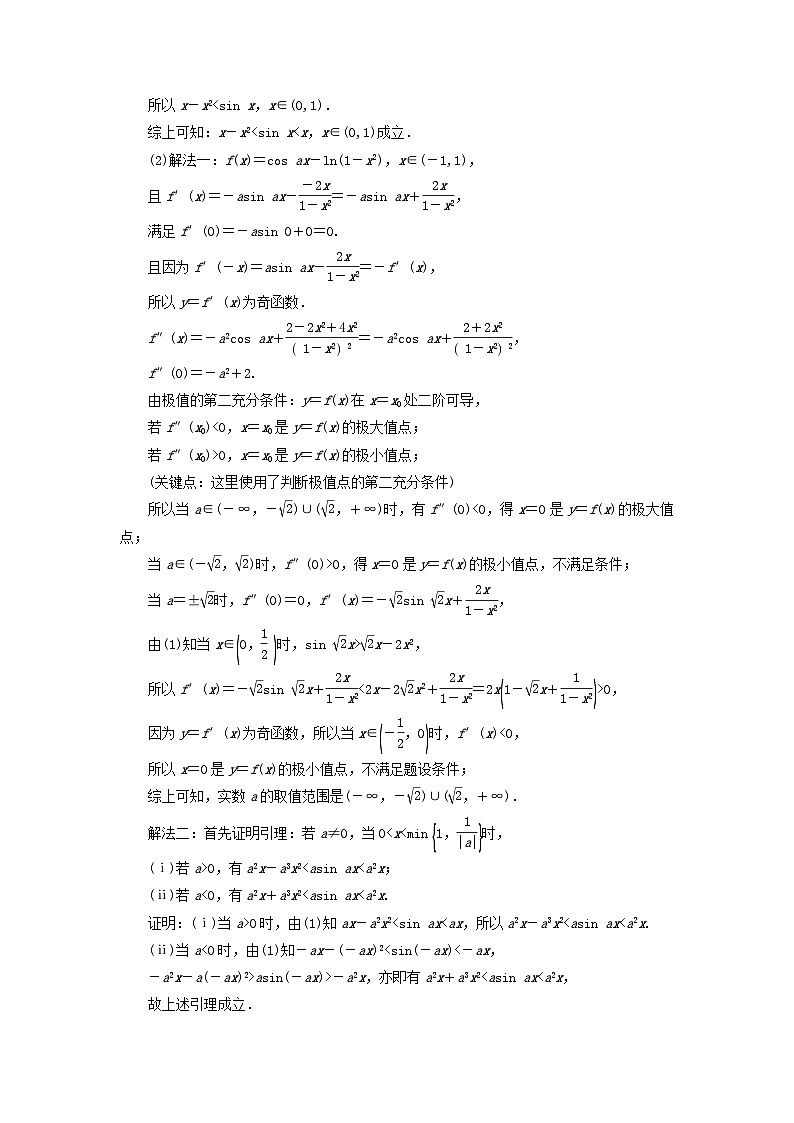 所以 x－x²<sin x，x∈(0,1).
综上可知：x－x²<sin x<x，x∈(0,1)成立.
(2)解法一：f(x)＝cos ax－ln(1－x²)，x∈(－1,1)，
且 f′(x)＝－asin ax－\frac{－2x}{1－x²}＝－asin ax＋\frac{2x}{1－x²}，
满足 f′(0)＝－asin 0＋0＝0.
且因为 f′(－x)＝asin ax－\frac{2x}{1－x²}＝－f′(x)，
所以 y＝f′(x)为奇函数.
f″(x)＝－a²cos ax＋\frac{2－2x²＋4x²}{(1－x²)²}＝－a²cos ax＋\frac{2＋2x²}{(1－x²)²}，
f″(0)＝－a²＋2.
由极值的第二充分条件：y＝f(x)在 x＝x₀处二阶可导，
若 f″(x₀)<0，x＝x₀是 y＝f(x)的极大值点；
若 f″(x₀)>0，x＝x₀是 y＝f(x)的极小值点；
(关键点：这里使用了判断极值点的第二充分条件)
所以当 a∈(－∞，－√2)∪(√2，＋∞)时，有 f″(0)<0，得 x＝0 是 y＝f(x)的极大值
点；
当 a∈(－√2，√2)时，f″(0)>0，得 x＝0 是 y＝f(x)的极小值点，不满足条件；
当 a＝±√2时，f″(0)＝0，f′(x)＝－√2sin √2x＋\frac{2x}{1－x²}，
由(1)知当 x∈(0，\frac{1}{2})时，sin √2x>√2x－2x²，
所以 f′(x)＝－√2sin √2x＋\frac{2x}{1－x²}<2x－2√2x²＋\frac{2x}{1－x²}＝2x(1－√2x＋\frac{1}{1－x²})>0，
因为 y＝f′(x)为奇函数，所以当 x∈(－\frac{1}{2}，0)时，f′(x)<0，
所以 x＝0 是 y＝f(x)的极小值点，不满足题设条件；
综上可知，实数 a 的取值范围是(－∞，－√2)∪(√2，＋∞).
解法二：首先证明引理：若 a≠0，当 0<x<min{1，\frac{1}{|a|}}时，
(ⅰ)若 a>0，有 a²x－a³x²<asin ax<a²x；
(ⅱ)若 a<0，有 a²x＋a³x²<asin ax<a²x.
证明：(ⅰ)当 a>0 时，由(1)知 ax－a²x²<sin ax<ax，所以 a²x－a³x²<asin ax<a²x.
(ⅱ)当 a<0 时，由(1)知－ax－(－ax)²<sin(－ax)<－ax，
－a²x－a(－ax)²>asin(－ax)>－a²x，亦即有 a²x＋a³x²<asin ax<a²x，
故上述引理成立.